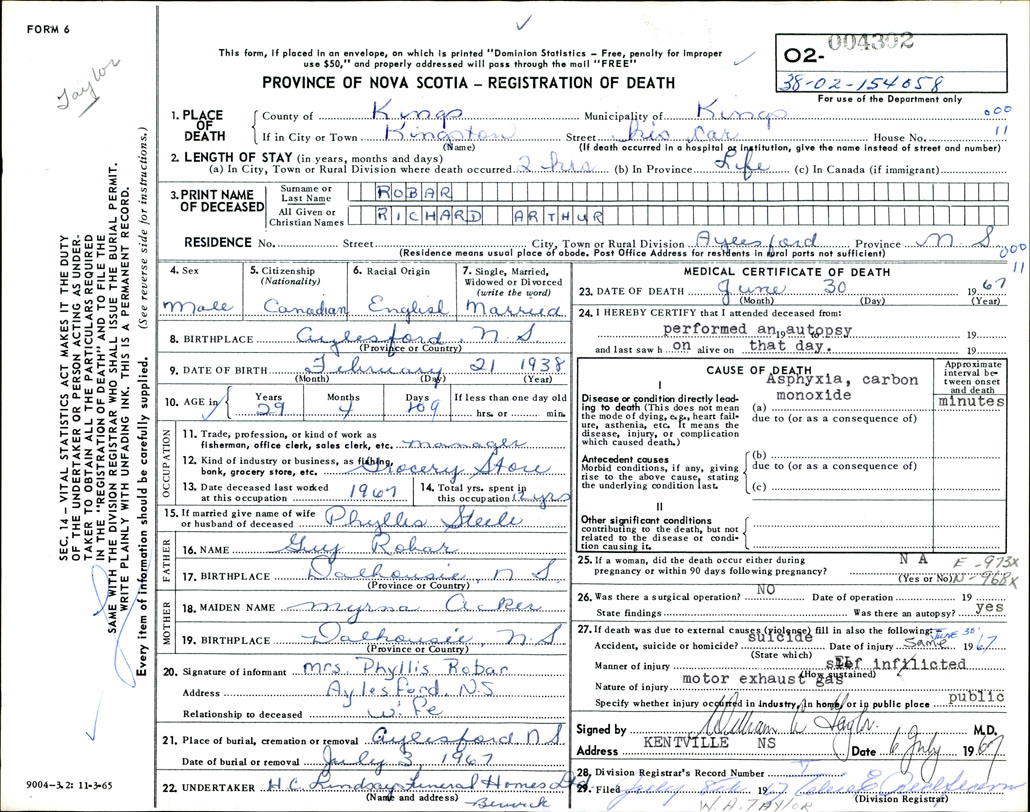 FORM 6
Taylor
This form, if placed in an envelope, on which is printed "Dominion Statistics – Free, penalty for improper
use $50," and properly addressed will pass through the mail "FREE"
PROVINCE OF NOVA SCOTIA – REGISTRATION OF DEATH
O2- 004302
38-02-154058
For use of the Department only
SEC. 14 – VITAL STATISTICS ACT MAKES IT THE DUTY
OF THE UNDERTAKER OR PERSON ACTING AS UNDER-
TAKER TO OBTAIN ALL THE PARTICULARS REQUIRED
IN THE "REGISTRATION OF DEATH" AND TO FILE THE
SAME WITH THE DIVISION REGISTRAR WHO SHALL ISSUE THE BURIAL PERMIT.
WRITE PLAINLY WITH UNFADING INK. THIS IS A PERMANENT RECORD.
Every item of information should be carefully supplied. (See reverse side for instructions.)
1. PLACE OF DEATH
County of Kings Municipality of Kings
000
11
If in City or Town Kingston Street his car House No.
(Name) (If death occurred in a hospital or institution, give the name instead of street and number)
2. LENGTH OF STAY (in years, months and days)
(a) In City, Town or Rural Division where death occurred 2 hrs (b) In Province Life (c) In Canada (if immigrant)
3. PRINT NAME OF DECEASED
Surname or Last Name ROBAR
All Given or Christian Names RICHARD ARTHUR
RESIDENCE No. Street City, Town or Rural Division Aylesford Province N. S
(Residence means usual place of abode. Post Office Address for residents in rural parts not sufficient)
000
11
4. Sex 5. Citizenship (Nationality) 6. Racial Origin 7. Single, Married, Widowed or Divorced (write the word)
Male Canadian English Married
8. BIRTHPLACE Aylesford, N. S
(Province or Country)
9. DATE OF BIRTH February 21 1938
(Month) (Day) (Year)
10. AGE in Years Months Days If less than one day old
29 4 9 hrs. or min.
OCCUPATION
11. Trade, profession, or kind of work as
fisherman, office clerk, sales clerk, etc. manager
12. Kind of industry or business, as fishing,
bank, grocery store, etc. Grocery Store
13. Date deceased last worked
at this occupation 1967
14. Total yrs. spent in
this occupation 12 yrs
15. If married give name of wife
or husband of deceased Phyllis Steele
FATHER
16. NAME Guy Robar
17. BIRTHPLACE Dalhousie, N S.
(Province or Country)
MOTHER
18. MAIDEN NAME Myrna Acker
19. BIRTHPLACE Dalhousie, N. S
(Province or Country)
20. Signature of informant Mrs. Phyllis Robar
Address Aylesford, N.S
Relationship to deceased wife
21. Place of burial, cremation or removal Aylesford N S
Date of burial or removal July 3, 1967
22. UNDERTAKER H.C. Lindsay Funeral Homes Ltd
(Name and address) Berwick
9004-3.2: 11-3-65
MEDICAL CERTIFICATE OF DEATH
23. DATE OF DEATH June 30 1967
(Month) (Day) (Year)
24. I HEREBY CERTIFY that I attended deceased from:
performed an autopsy 19
and last saw h on alive on that day. 19
CAUSE OF DEATH
Approximate interval between onset and death
I
Disease or condition directly lead-
ing to death (This does not mean
the mode of dying, e.g., heart fail-
ure, asthenia, etc. It means the
disease, injury, or complication
which caused death.)
Asphyxia, carbon
monoxide minutes
(a)
due to (or as a consequence of)
Antecedent causes
Morbid conditions, if any, giving
rise to the above cause, stating
the underlying condition last.
(b)
due to (or as a consequence of)
(c)
II
Other significant conditions
contributing to the death, but not
related to the disease or condi-
tion causing it.
25. If a woman, did the death occur either during N A E-973X
pregnancy or within 90 days following pregnancy? (Yes or No) N-968X
26. Was there a surgical operation? NO Date of operation 19
State findings Was there an autopsy? yes
27. If death was due to external causes (violence) fill in also the following:
JUNE 30
Accident, suicide or homicide? suicide Date of injury same 1967
(State which)
Manner of injury self inflicted
(How sustained)
Nature of injury motor exhaust gas
Specify whether injury occurred in industry, in home, or in public place public
Signed by William A Taylor M.D.
Address KENTVILLE NS Date 6 July 1967
28. Division Registrar's Record Number
29. Filed July 8th 1967
(Division Registrar)
W. A. TAYLOR